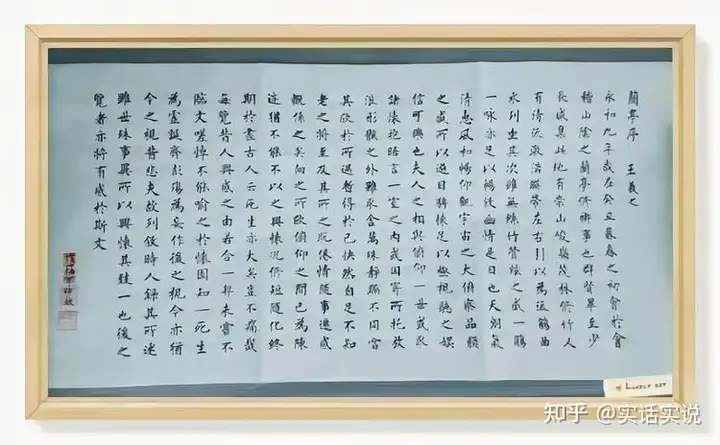 蘭亭序 王羲之
永和九年歲在癸丑暮春之初會於會
稽山陰之蘭亭修禊事也群賢畢至少
長咸集此地有崇山峻嶺茂林修竹又
有清流激湍映帶左右引以為流觴曲
水列坐其次雖無絲竹管弦之盛一觴
一詠亦足以暢敘幽情是日也天朗氣
清惠風和暢仰觀宇宙之大俯察品類
之盛所以遊目騁懷足以極視聽之娛
信可樂也夫人之相與俯仰一世或取
諸懷抱晤言一室之內或因寄所托放
浪形骸之外雖取舍萬殊靜躁不同當
其欣於所遇暫得於己快然自足不知
老之將至及其所之既倦情隨事遷感
慨係之矣向之所欣俯仰之間已為陳
跡猶不能不以之興懷況修短隨化終
期於盡古人云死生亦大矣豈不痛哉
每覽昔人興感之由若合一契未嘗不
臨文嗟悼不能喻之於懷固知一死生
為虛誕齊彭殤為妄作後之視今亦猶
今之視昔悲夫故列敘時人錄其所述
雖世殊事異所以興懷其致一也後之
覽者亦將有感於斯文
SET
知乎 @实话实说